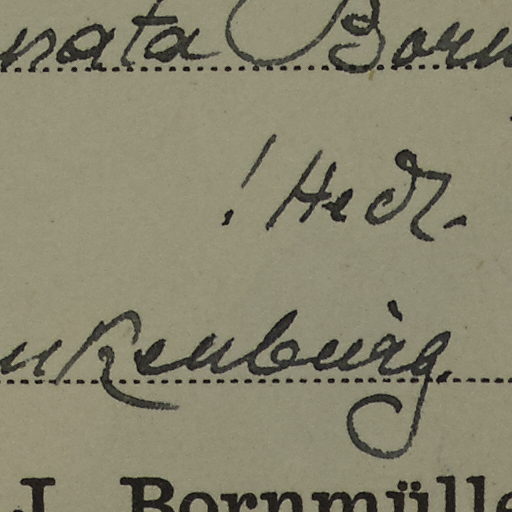 nata Born
! Hedl.
nkenburg.
J. Bornmülle